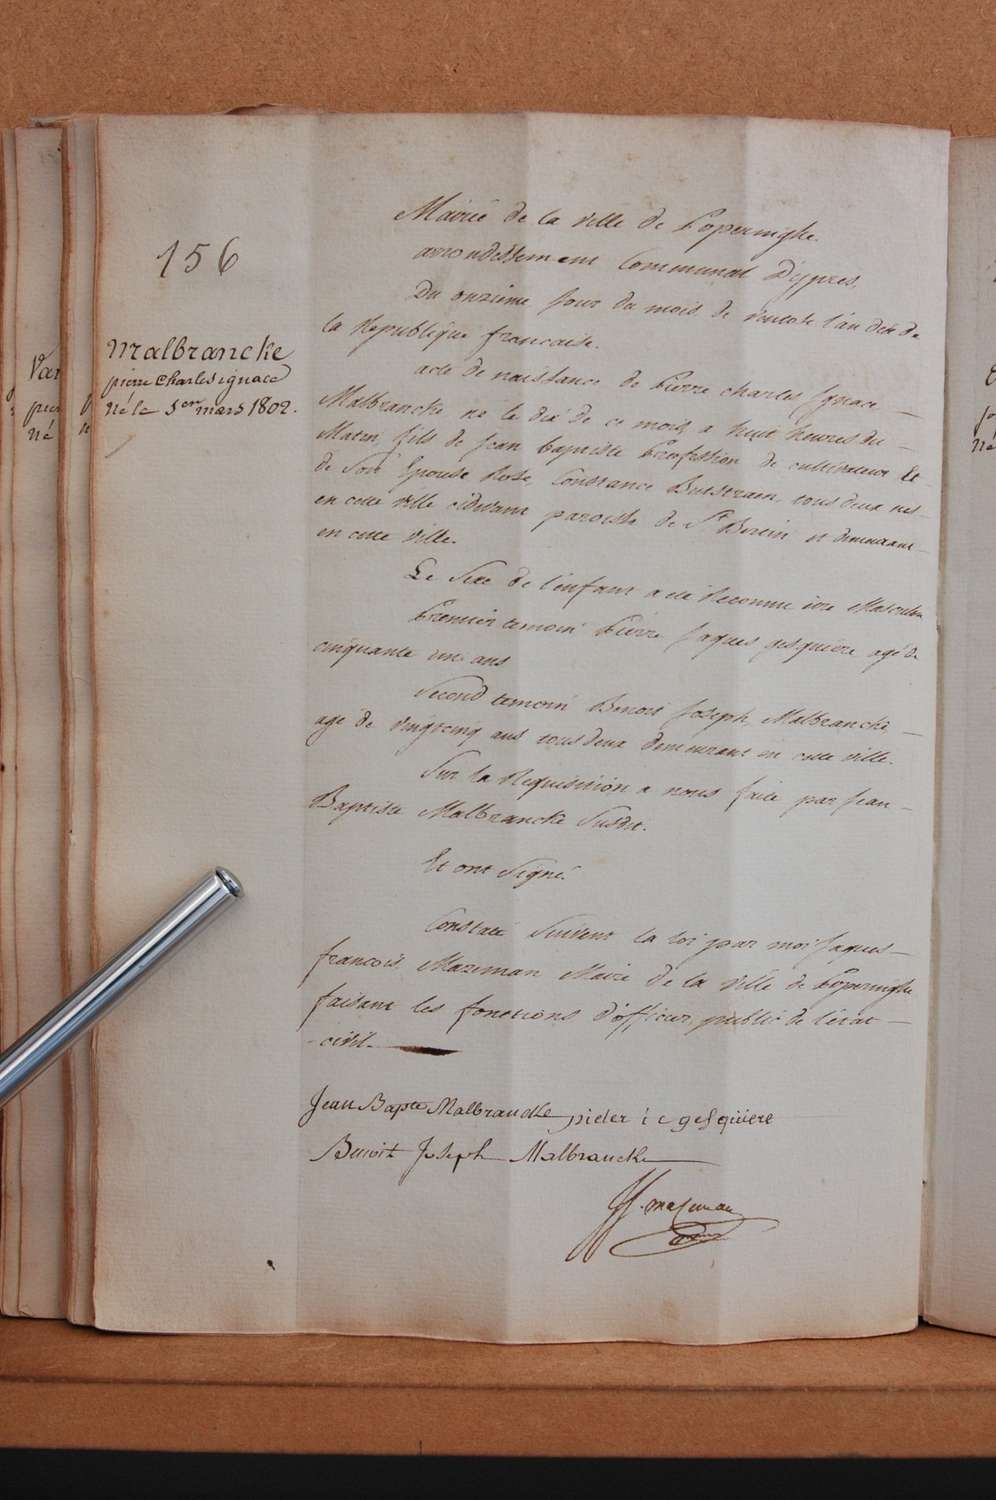 156
Malbrancke
pierre Charles ignace
né le 1er mars 1802.
Mairié de la ville de Poperinghe.
arrondissement Communal D'ypres.
Du onzieme Jour du mois de ventose l'an dix de
la Republique francaise.
acte de naissance de Pierre Charles Ignace
Malbrancke né le dix de ce mois a huit heures du
Matin, fils de Jean baptiste Profession de cultivateur Et
de Son Epouse Rose, Constance Butstraen, tous deux nés
en cette ville cidevant paroisse de St Bertin et demeurant
en cette ville.
Le Sexe de l'enfant a eté Reconnu être Masculin
Premier temoin Pierre Jaques gesquiere agé de
cinquante un ans
Second temoin Benoit Joseph Malbrancke
agé de vingtcinq ans tous deux demeurant en cette ville.
Sur la Requisition a nous faite par Jean
Baptiste Malbrancke Susdit.
Et ont Signé.
Constaté Suivant la loi par moi Jaques
francois, Mazeman Maire de la ville de Poperinghe
faisant les fonctions d'officier public de l'état
civil.
Jean Bapte Malbrancke pieter i c gesquiere
Benoit Joseph Malbrancke
JF. mazeman
Var
pier
né